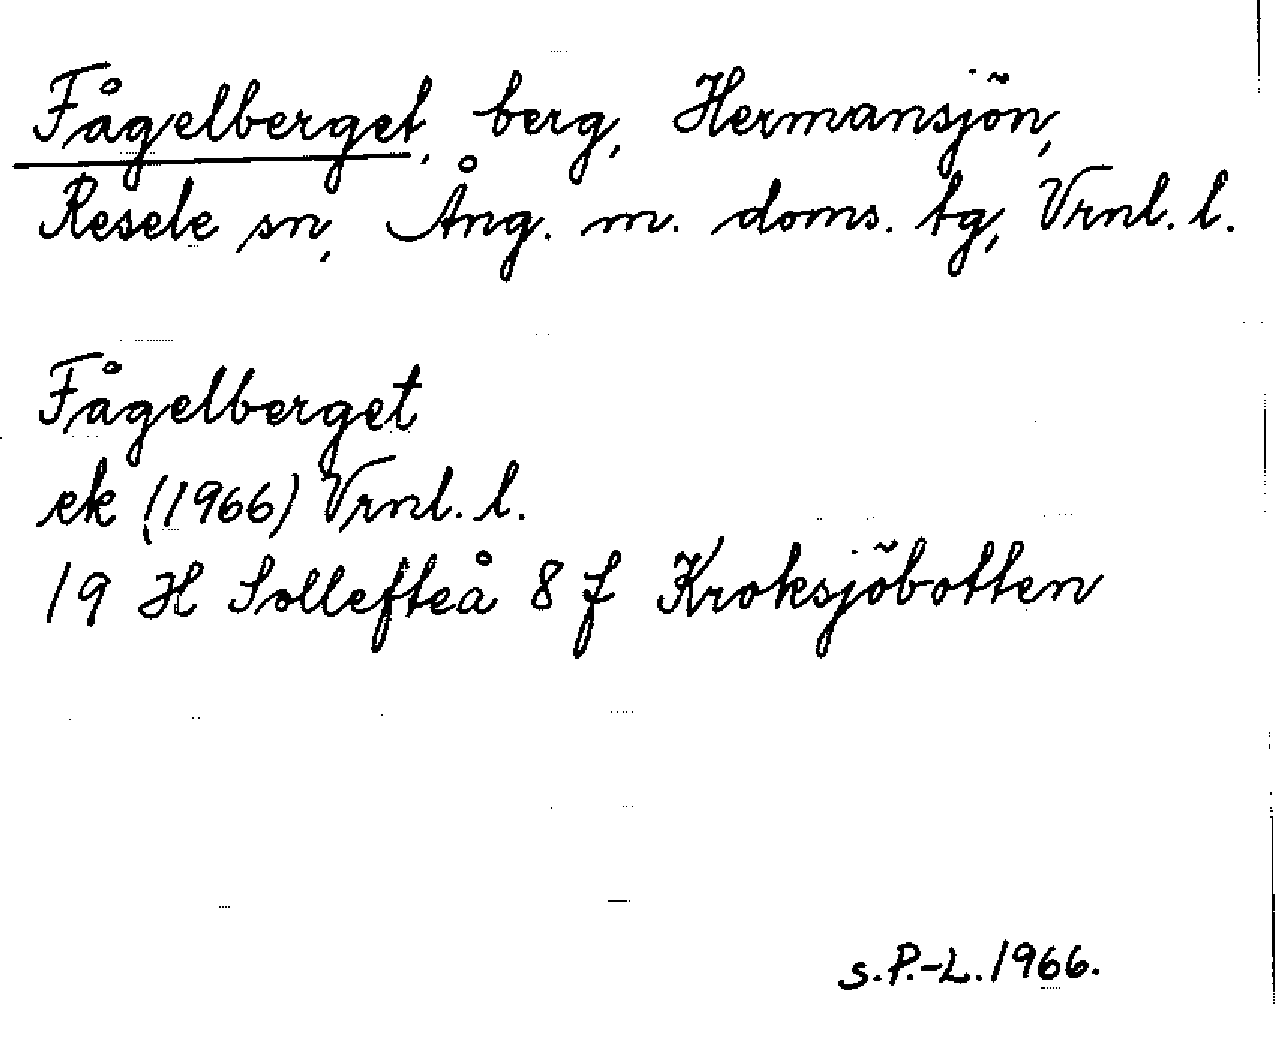 Fågelberget, berg, Hermansjön,
Resele sn, Ång. m. doms. tg, Vrnl. l.
Fågelberget
ek (1966) Vrnl. l.
19 H Sollefteå 8 f Kroksjöbotten
s.P.-L.1966.